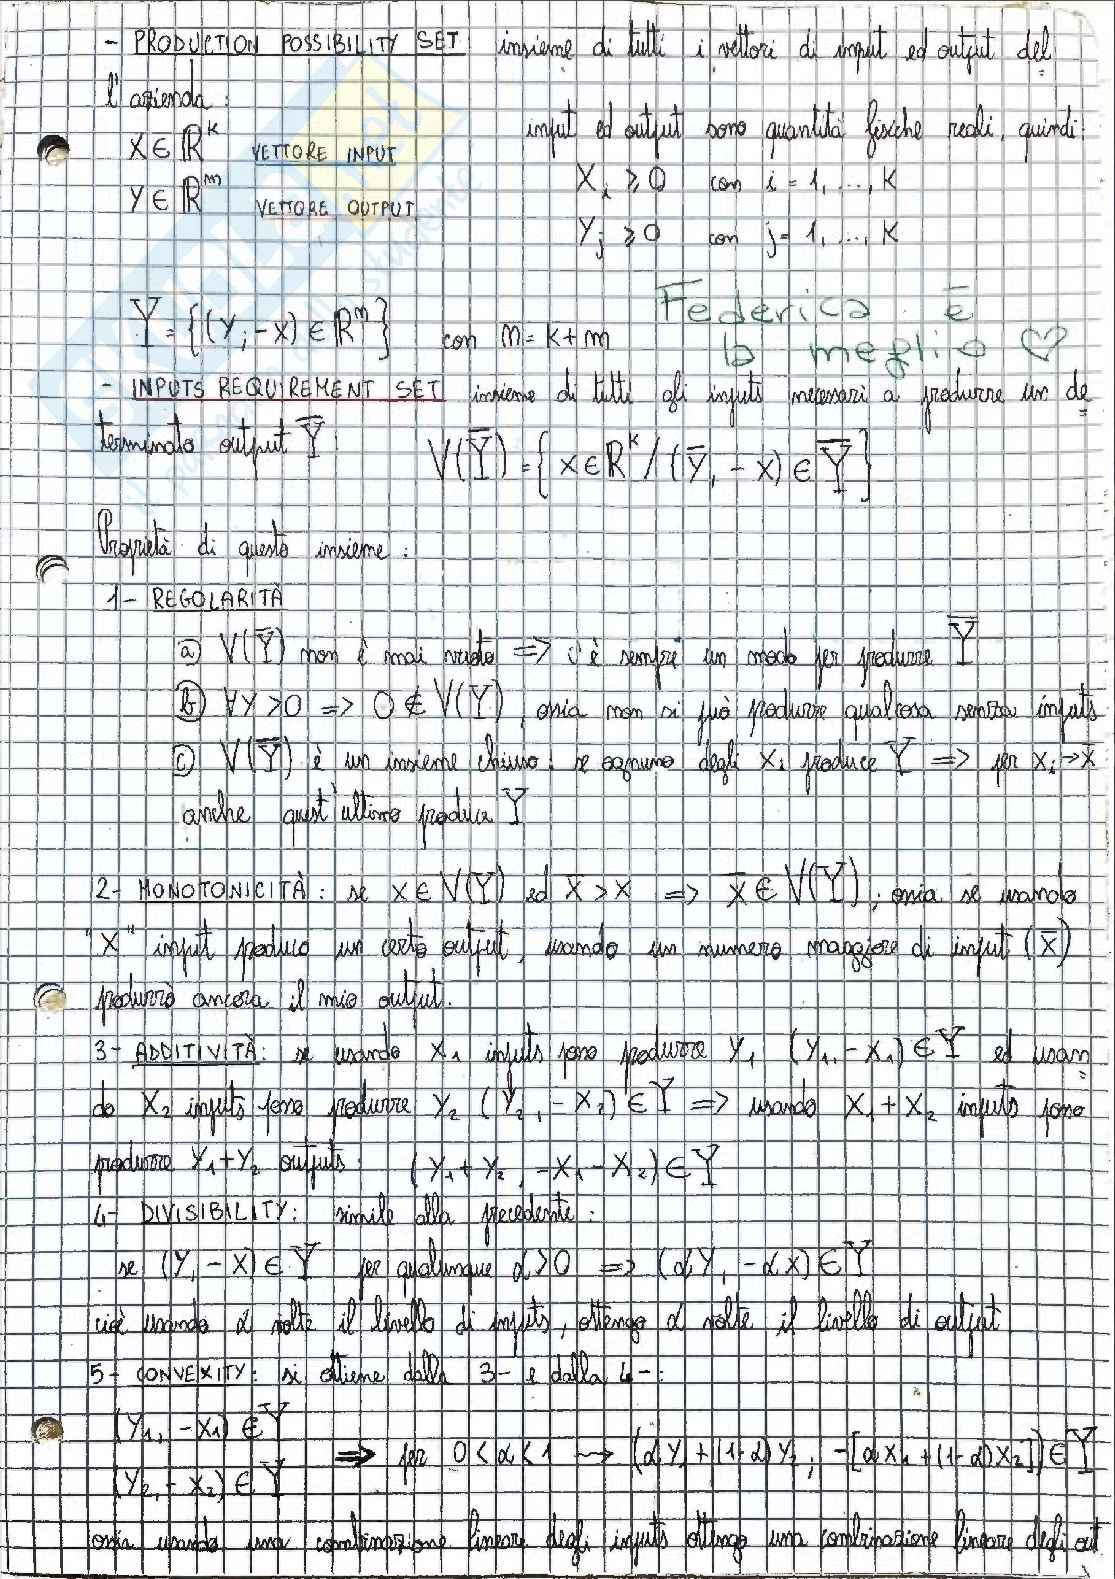 - PRODUCTION POSSIBILITY SET insieme di tutti i vettori di input ed output del
l'azienda:
input ed output sono quantità fisiche reali, quindi:
X ∈ ℝ^k VETTORE INPUT
X_i ≥ 0 con i = 1, ..., K
Y ∈ ℝ^m VETTORE OUTPUT
Y_j ≥ 0 con j = 1, ..., K
Y = {(Y, -X) ∈ ℝ^n} con n = k + m
Federica è
la meglio ♡
- INPUTS REQUIREMENT SET insieme di tutti gli inputs necessari a produrre un de
terminato output Ȳ:
V(Ȳ) = { X ∈ ℝ^k / (Ȳ, -X) ∈ Y }
Proprietà di questo insieme:
1- REGOLARITÀ
a) V(Ȳ) non è mai vuoto => c'è sempre un modo per produrre Ȳ
b) ∀Y > 0 => 0 ∉ V(Y), ossia non si può produrre qualcosa senza inputs
c) V(Ȳ) è un insieme chiuso: se ognuno degli X_i produce Y => per X_i → X̄
anche quest'ultimo produce Y
2- MONOTONICITÀ: se X ∈ V(Y) ed X̄ > X => X̄ ∈ V(Y); ossia se usando
"X" input produco un certo output, usando un numero maggiore di input (X̄)
produrrò ancora il mio output.
3- ADDITIVITÀ: se usando X_1 inputs posso produrre Y_1 (Y_1, -X_1) ∈ Y ed usan
do X_2 inputs posso produrre Y_2 (Y_2, -X_2) ∈ Y => usando X_1 + X_2 inputs posso
produrre Y_1 + Y_2 outputs (Y_1 + Y_2, -X_1 - X_2) ∈ Y
4- DIVISIBILITY: simile alla precedente:
se (Y, -X) ∈ Y per qualunque α > 0 => (αY, -αX) ∈ Y
cioè usando α volte il livello di inputs, ottengo α volte il livello di output
5- CONVEXITY: si ottiene dalla 3- e dalla 4-:
(Y_1, -X_1) ∈ Y
=> per 0 < α < 1 → (αY_1 + (1-α)Y_2, -[αX_1 + (1-α)X_2]) ∈ Y
(Y_2, -X_2) ∈ Y
ossia usando una combinazione lineare degli inputs ottengo una combinazione lineare degli out